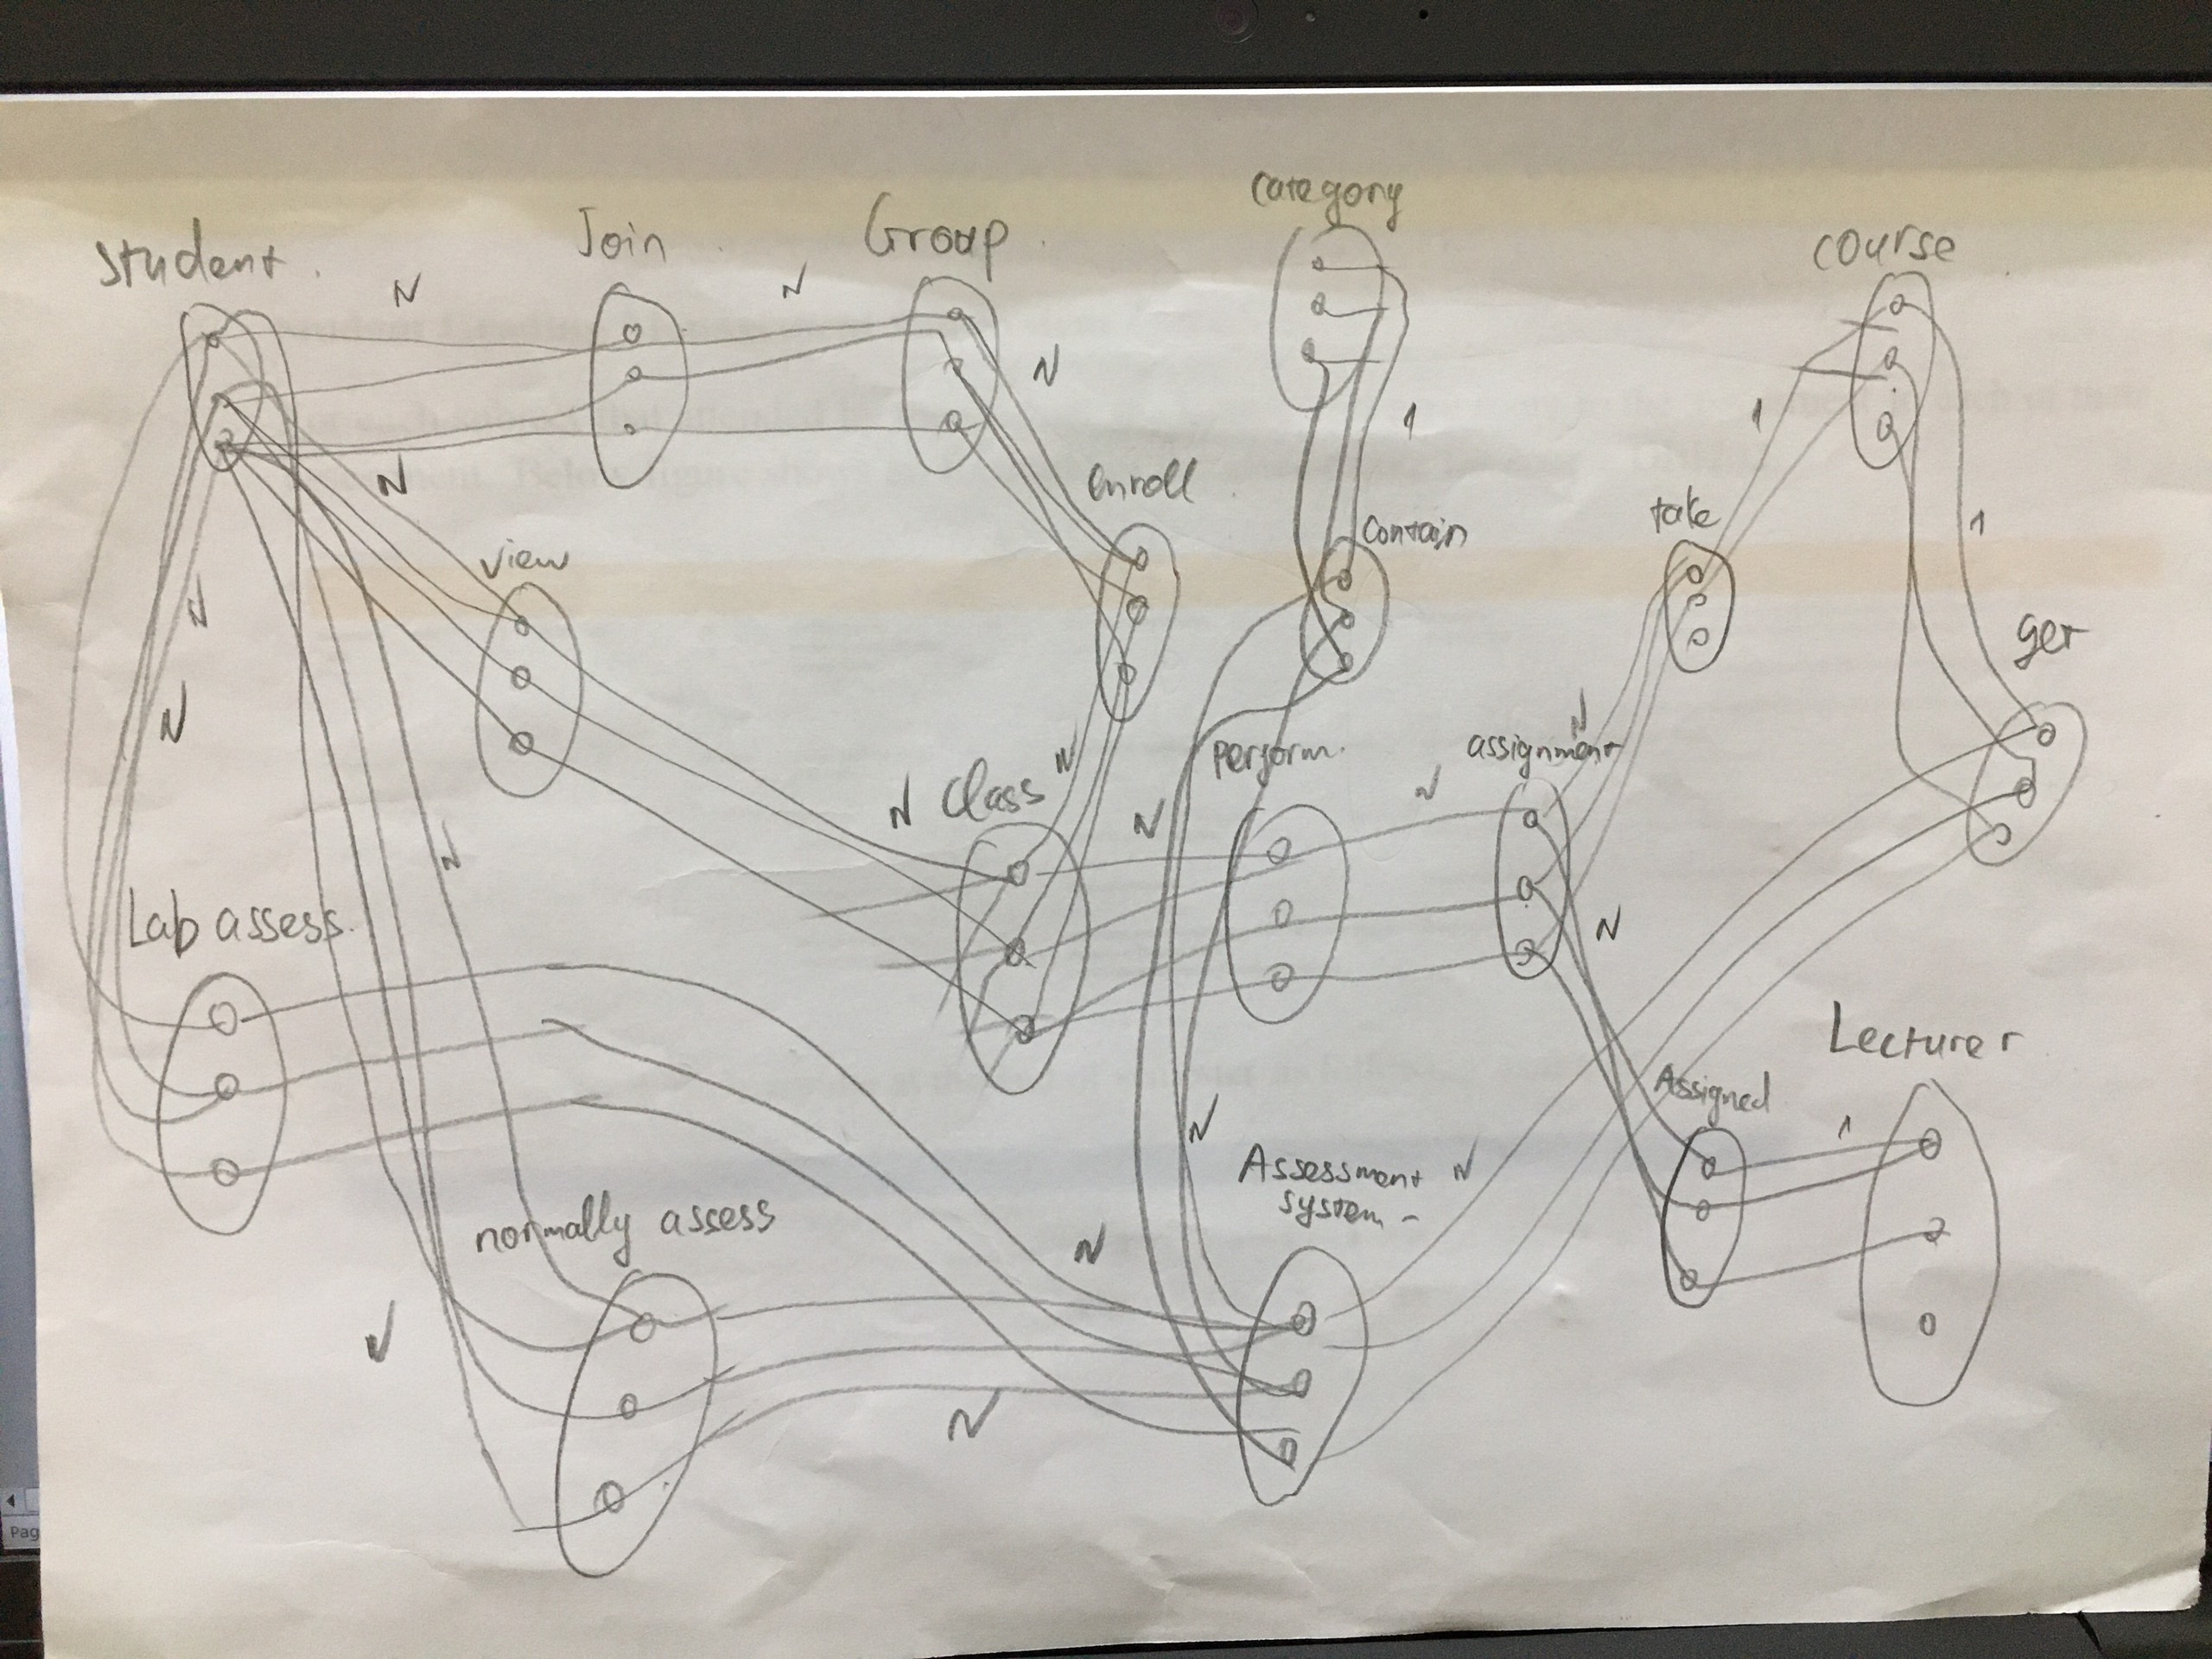 category
Student.
Join
Group.
course
N
N
N
1
1
N
enroll
Contain
take
1
view
ger
N
N
N
N
Class
N
Perform.
N
assignment
N
N
N
Lab assess.
N
Lecturer
Assigned
1
N
Assessment
system -
N
normally assess
N
N
N
Pag